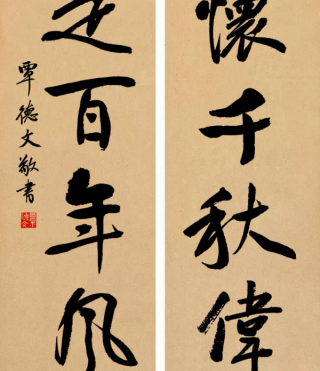 懷千秋偉
百年風
覃德文敬書